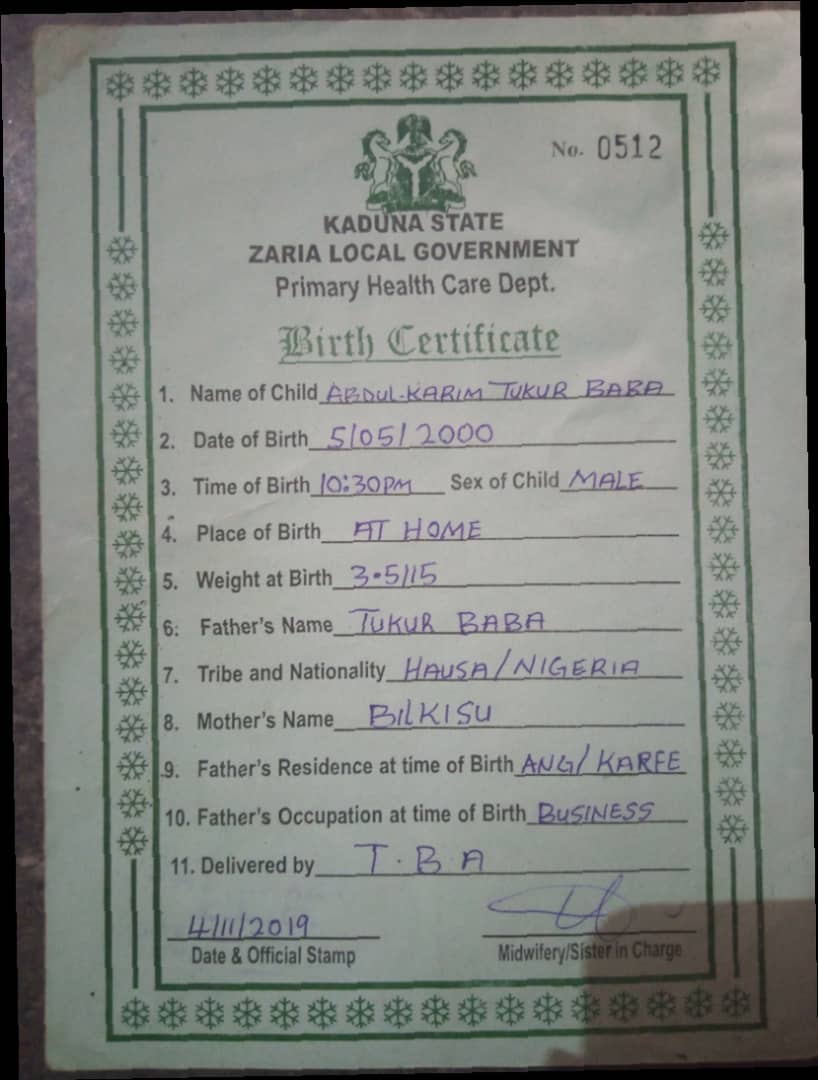 No. 0512
KADUNA STATE
ZARIA LOCAL GOVERNMENT
Primary Health Care Dept.
Birth Certificate
1. Name of Child ABDUL-KARIM TUKUR BABA
2. Date of Birth 5/05/2000
3. Time of Birth 10:30PM Sex of Child MALE
4. Place of Birth AT HOME
5. Weight at Birth 3.5/15
6: Father's Name TUKUR BABA
7. Tribe and Nationality HAUSA/NIGERIA
8. Mother's Name BILKISU
9. Father's Residence at time of Birth ANG/KARFE
10. Father's Occupation at time of Birth BUSINESS
11. Delivered by T.B A
4/11/2019
Date & Official Stamp
Midwifery/Sister in Charge